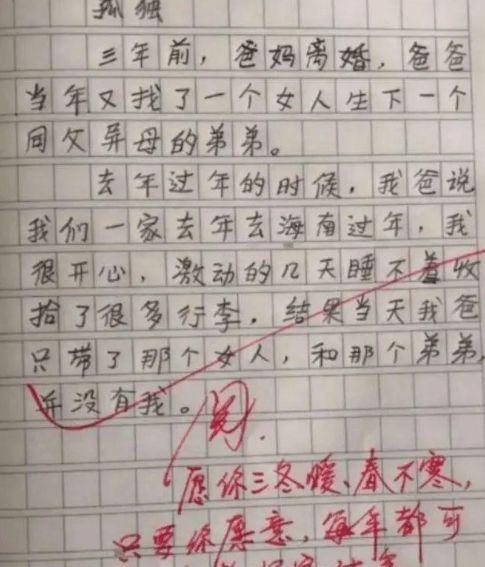 孤独
三年前，爸妈离婚，爸爸
当年又找了一个女人生下一个
同父异母的弟弟。
去年过年的时候，我爸说
我们一家去年去海南过年，我
很开心，激动的几天睡不着收
拾了很多行李，结果当天我爸
只带了那个女人，和那个弟弟，
并没有我。
阅.
愿你三冬暖、春不寒，
只要你愿意，每年都可